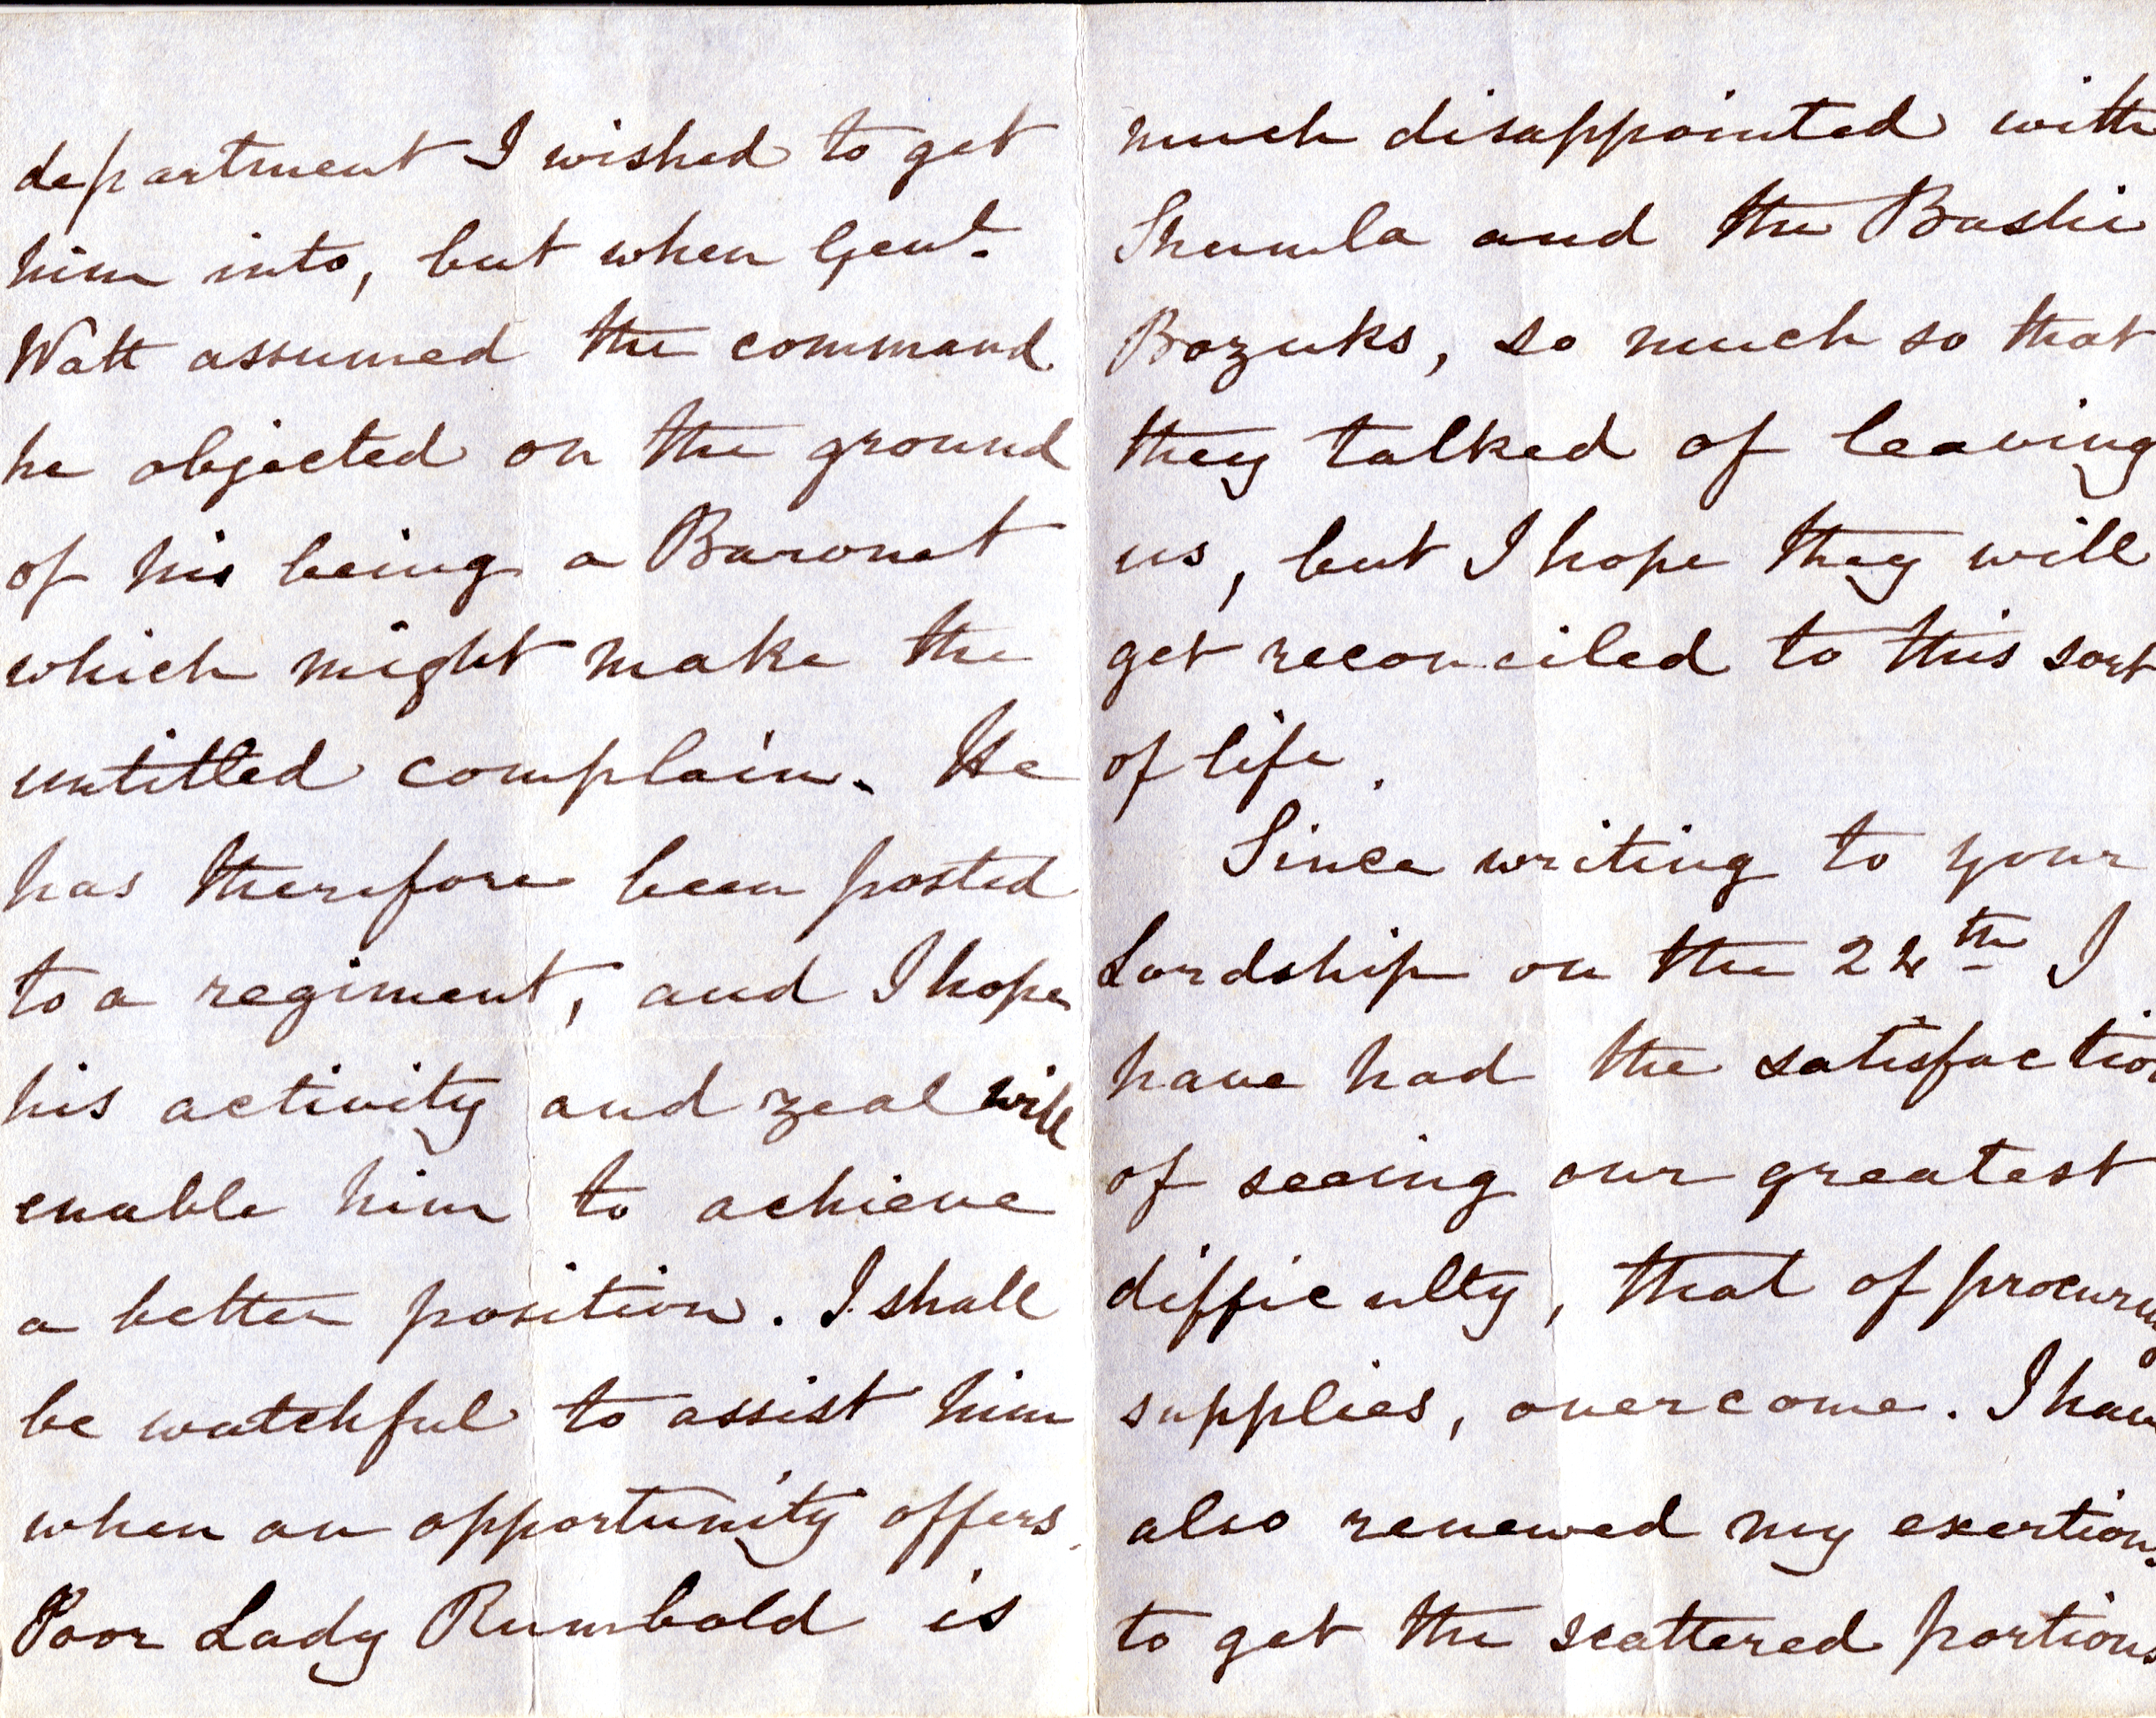 department I wished to get
him into, but when Genl.
Watt assumed the command
he objected on the ground
of his being a Baronet
which might make the
untitled complain. He
has therefore been posted
to a regiment, and I hope
his activity and zeal will
enable him to achieve
a better position. I shall
be watchful to assist him
when an opportunity offers.
Poor Lady Rumbold is
much disappointed with
Shumla and the Bashi
Bozuks, so much so that
they talked of leaving
us, but I hope they will
get reconciled to this sort
of life.
Since writing to your
Lordship on the 24th I
have had the satisfaction
of seeing our greatest
difficulty, that of procuring
supplies, overcome. I have
also renewed my exertions
to get the scattered portions